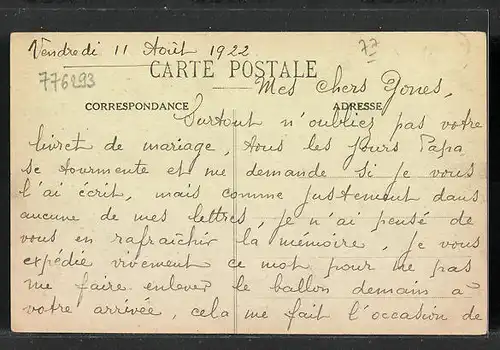 Vendredi 11 Août 1922
77
776293
CARTE POSTALE
Mes chers Yones,
CORRESPONDANCE
ADRESSE
Surtout n'oubliez pas votre
livret de mariage, tous les jours Papa
se tourmente et me demande si je vous
l'ai écrit, mais comme justement dans
aucune de mes lettres, je n'ai pensé de
vous en rafraîchir la mémoire, je vous
expédie vivement ce mot pour ne pas
me faire enlever le ballon demain à
votre arrivée, cela me fait l'occasion de